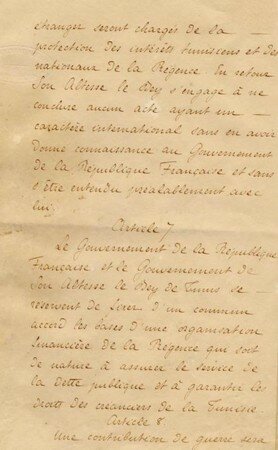 étranger seront chargés de la —
protection des intérêts tunisiens et des
nationaux de la Régence. En retour
Son Altesse le Bey s'engage à ne
conclure aucun acte ayant un —
caractère international sans en avoir
donné connaissance au Gouvernement
de la République Française et sans
s'être entendu préalablement avec
lui.
Article 7.
Le Gouvernement de la République
Française et le Gouvernement de
Son Altesse le Bey de Tunis se —
réservent de fixer d'un commun
accord les bases d'une organisation
financière de la Régence qui soit
de nature à assurer le service de
la Dette publique et à garantir les
droits des créanciers de la Tunisie.
Article 8.
Une contribution de guerre sera